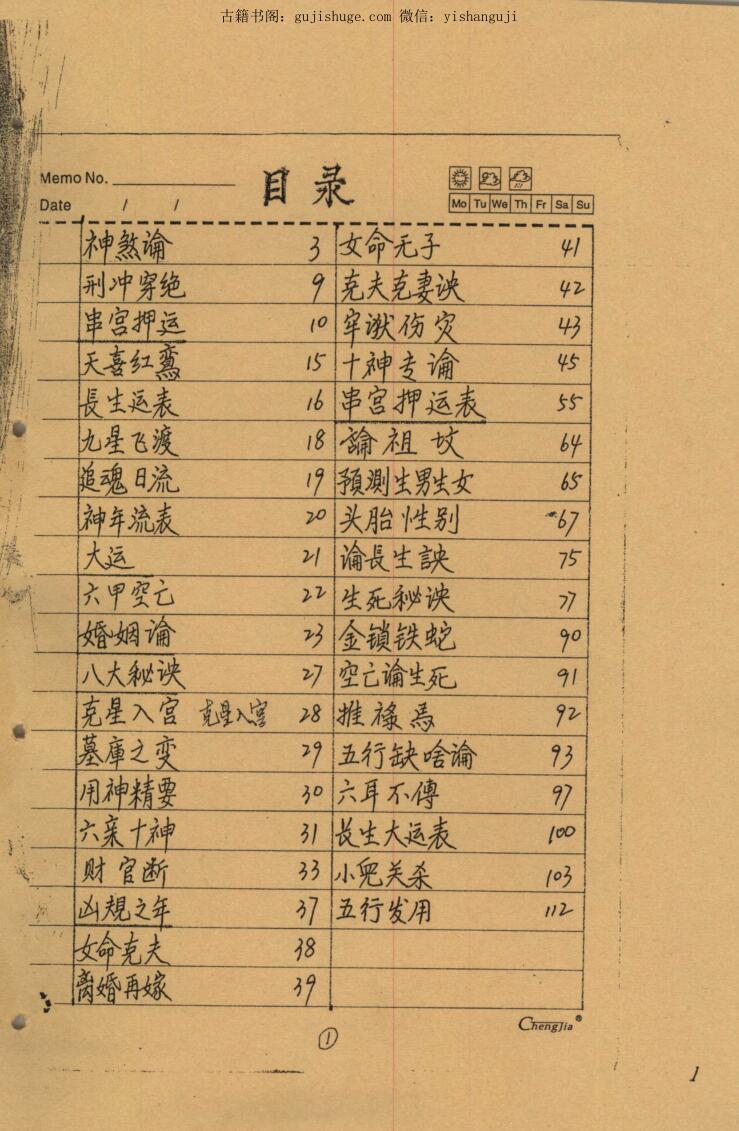 古籍书阁：gujishuge.com 微信：yishanguji
Memo No.
目录
Date / /
Mo Tu We Th Fr Sa Su
神煞論 3
刑冲穿绝 9
串宫押运 10
天喜红鸾 15
長生运表 16
九星飞渡 18
追魂日流 19
神年流表 20
大运 21
六甲空亡 22
婚姻論 23
八大秘诀 27
克星入宫 克星入宫 28
墓庫之变 29
用神精要 30
六亲十神 31
财官断 33
凶規之年 37
女命克夫 38
离婚再嫁 39
女命无子 41
克夫克妻诀 42
牢狱伤灾 43
十神专论 45
串宫押运表 55
論祖坟 64
預測生男生女 65
头胎性别 67
论長生訣 75
生死秘诀 77
金锁铁蛇 90
空亡論生死 91
推禄馬 92
五行缺啥論 93
六耳不傳 97
长生大运表 100
小兒关杀 103
五行发用 112
ChengJia®
1
1